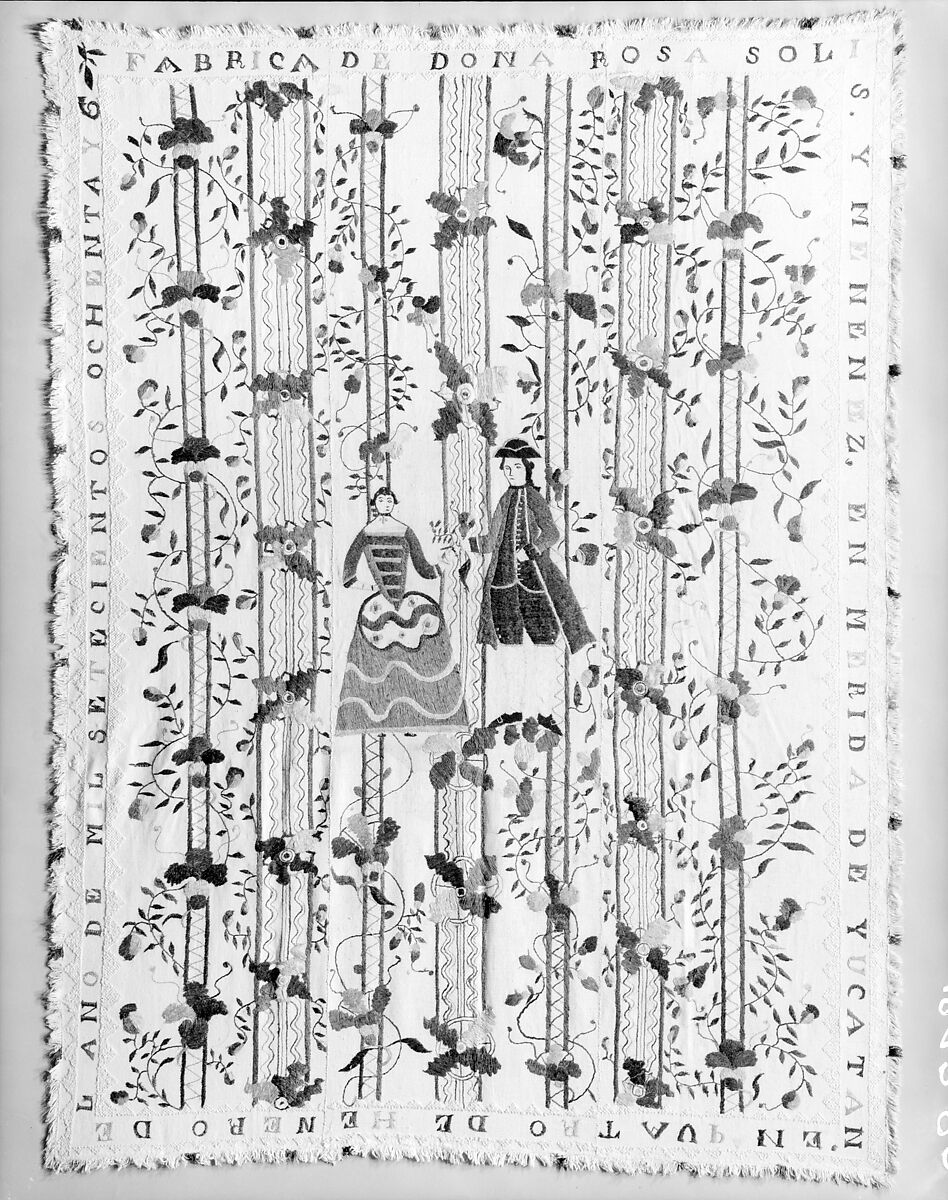 FABRICA DE DOÑA ROSA SOLI
S. Y MENENEZ, EN MERIDA DE YUCATAN
EN QUATRO DE HENERO DE DE
L ANO DE MIL SETECIENTOS OCHENTA Y 6